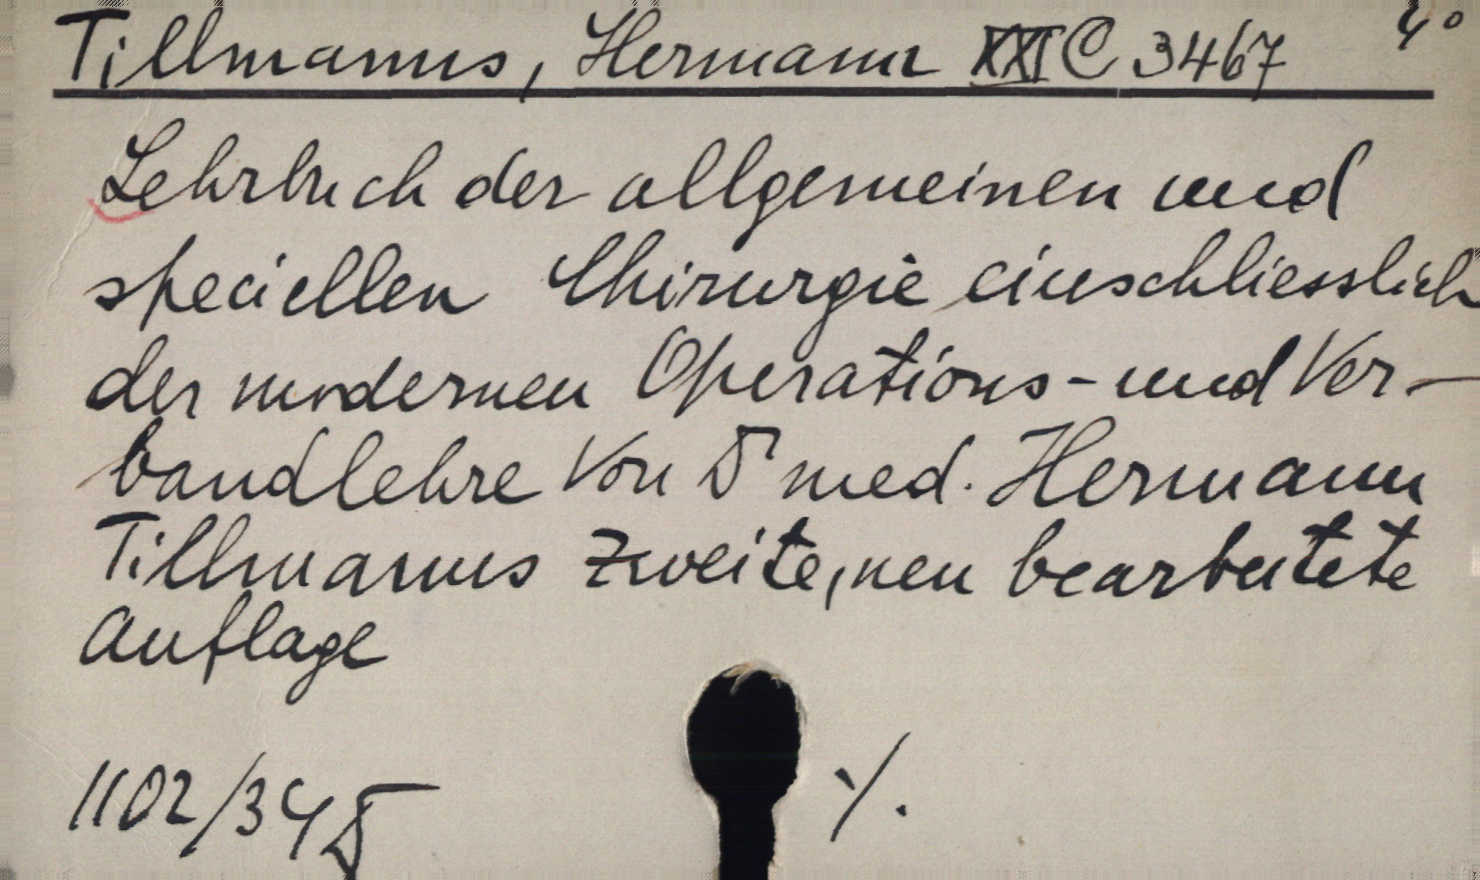 Tillmanns, Hermann XXI C 3467 4°
Lehrbuch der allgemeinen und
speciellen Chirurgie einschliesslich
der modernen Operations- und Ver-
bandlehre Von Dr med. Hermann
Tillmanns Zweite, neu bearbeitete
Auflage
1102/34 ./.